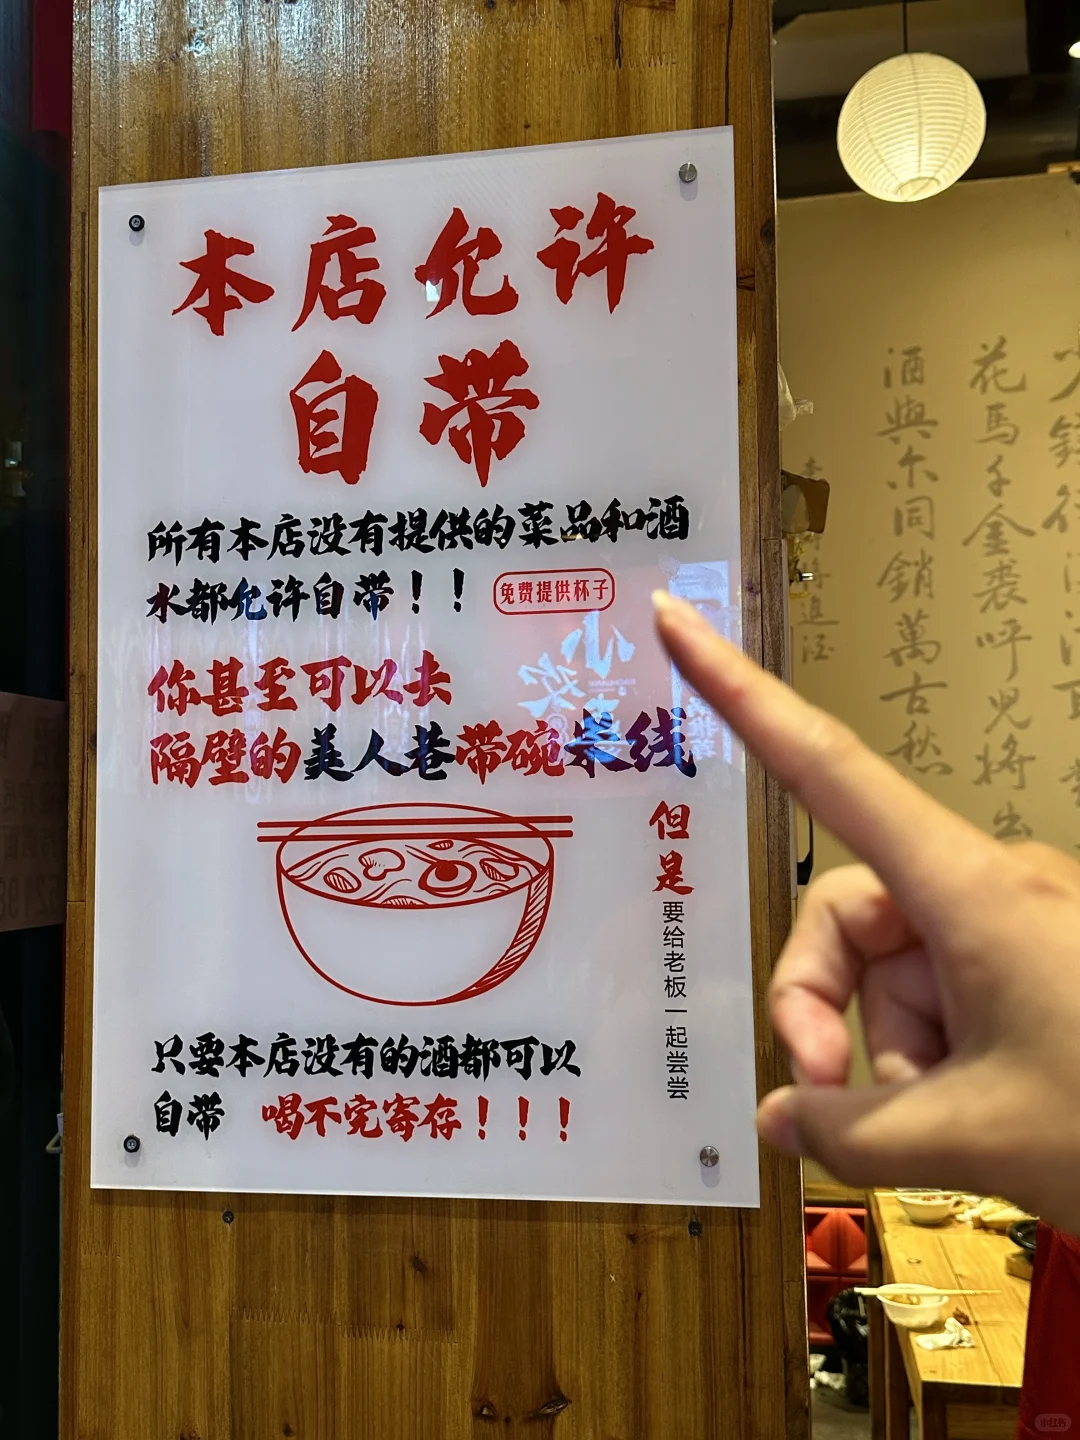 本店允许
自带
所有本店没有提供的菜品和酒
水都允许自带！！
免费提供杯子
你甚至可以去
隔壁的美人巷带碗米线
但是
要给老板一起尝尝
只要本店没有的酒都可以
自带 喝不完寄存！！！
花馬千金裘呼兒將出
酒與尔同銷萬古愁
小红书